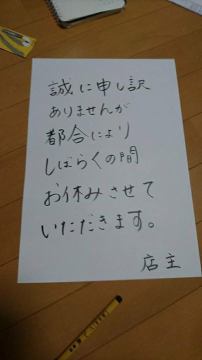 誠に申し訳
ありませんが
都合により
しばらくの間
お休みさせて
いただきます。
店主